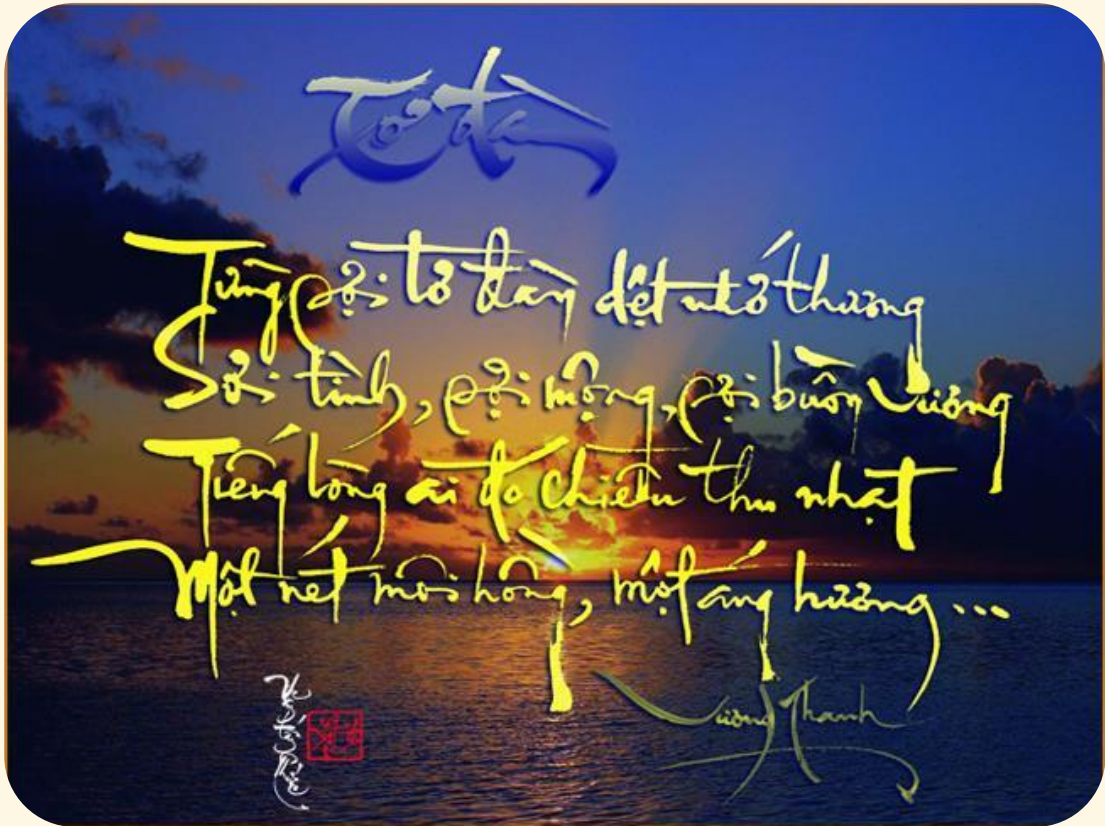 Tơ đàn
Từng sợi tơ đàn dệt nhớ thương
Sợi tình, sợi mộng, sợi buồn vương
Tiếng lòng ai đó chiều thu nhạt
Một nét môi hồng, một áng hương...
Vương Thanh